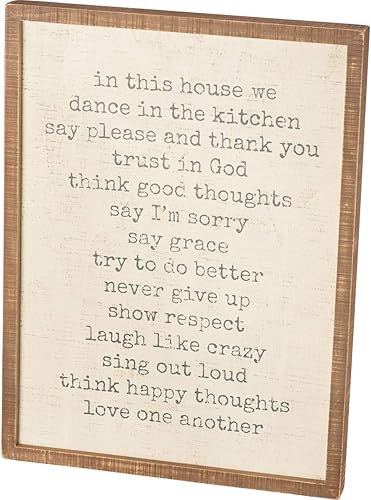 in this house we
dance in the kitchen
say please and thank you
trust in God
think good thoughts
say I'm sorry
say grace
try to do better
never give up
show respect
laugh like crazy
sing out loud
think happy thoughts
love one another